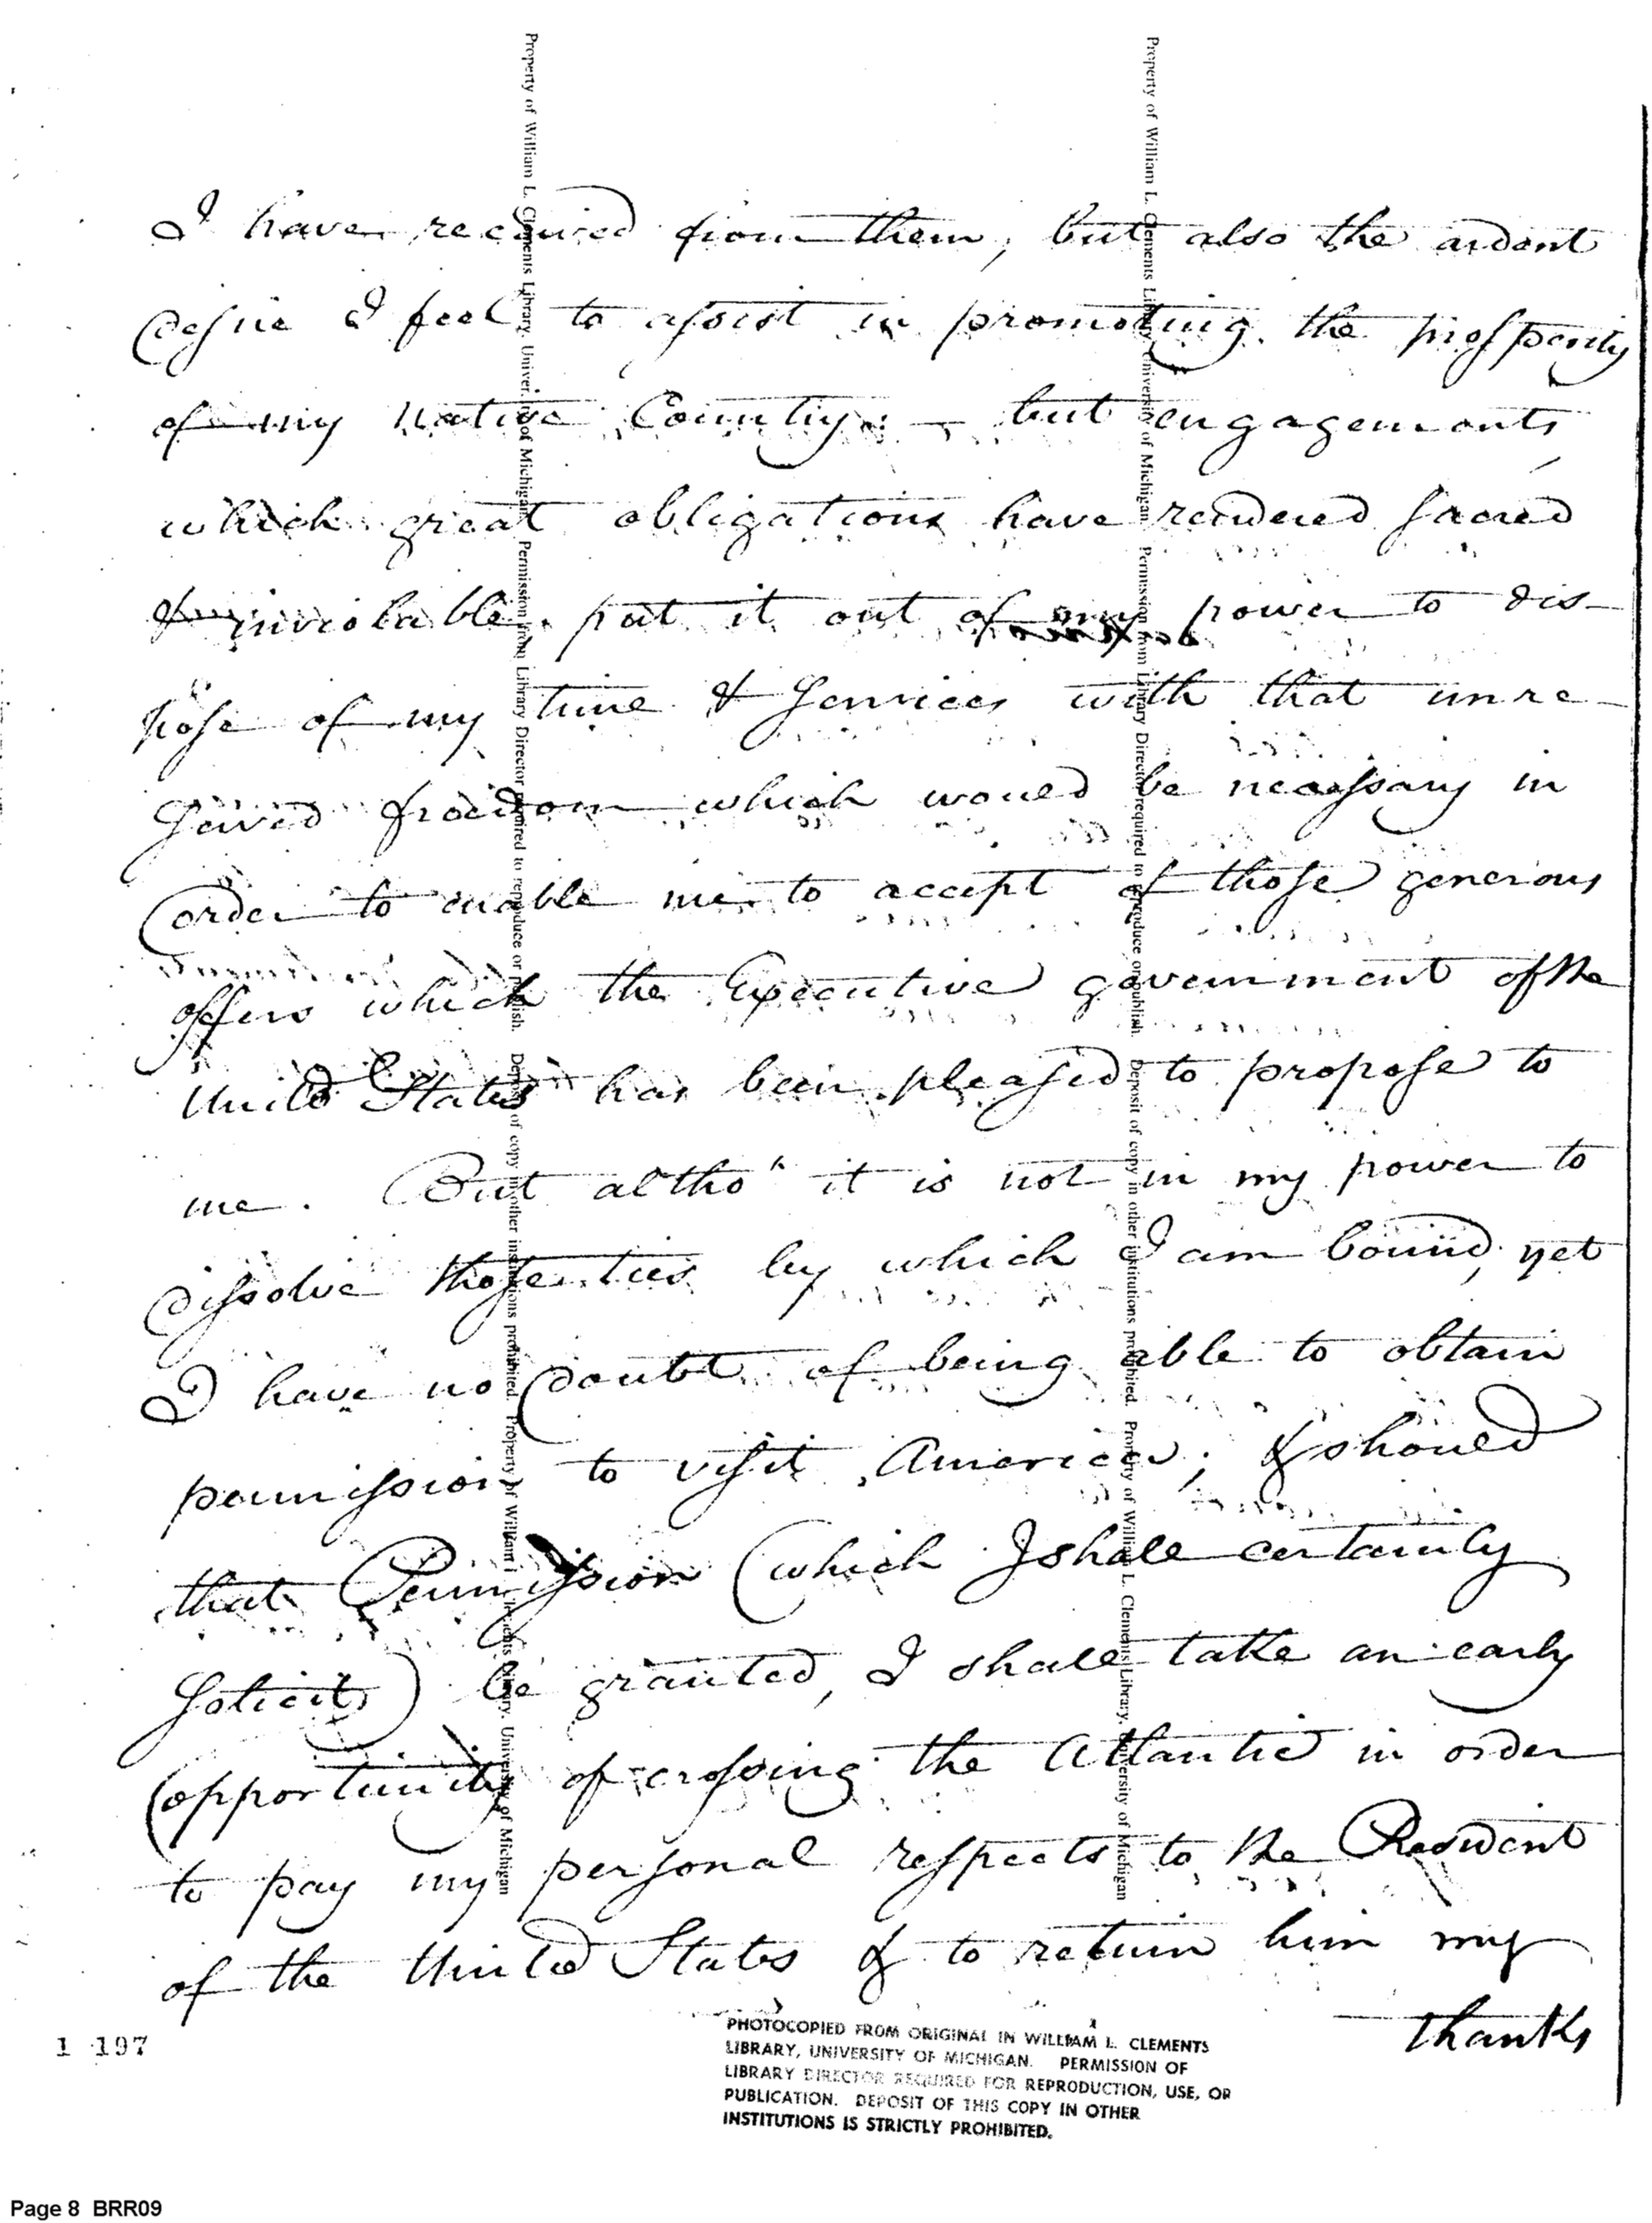 I have received from them, but also the ardent
desire I feel to assist in promoting the prosperity
of my native Country: — but engagements
which great obligations have rendered sacred
& inviolable, put it out of my power to dis-
pose of my time & Services with that unre-
served freedom which would be necessary in
order to enable me to accept of those generous
offers which the Executive government of the
United States has been pleased to propose to
me. But altho' it is not in my power to
dissolve those ties by which I am bound, yet
I have no doubt of being able to obtain
permission to visit America; & should
that Permission (which I shall certainly
Solicit) be granted, I shall take an early
opportunity of crossing the Atlantic in order
to pay my personal respects to the President
of the United States & to return him my
thanks
1 197
PHOTOCOPIED FROM ORIGINAL IN WILLIAM L. CLEMENTS
LIBRARY, UNIVERSITY OF MICHIGAN. PERMISSION OF
LIBRARY DIRECTOR REQUIRED FOR REPRODUCTION, USE, OR
PUBLICATION. DEPOSIT OF THIS COPY IN OTHER
INSTITUTIONS IS STRICTLY PROHIBITED.
Page 8 BRR09
Property of William L. Clements Library, University of Michigan. Permission from Library Director required to reproduce or publish. Deposit of copy in other institutions prohibited. Property of William L. Clements Library, University of Michigan
Property of William L. Clements Library, University of Michigan. Permission from Library Director required to reproduce or publish. Deposit of copy in other institutions prohibited. Property of William L. Clements Library, University of Michigan